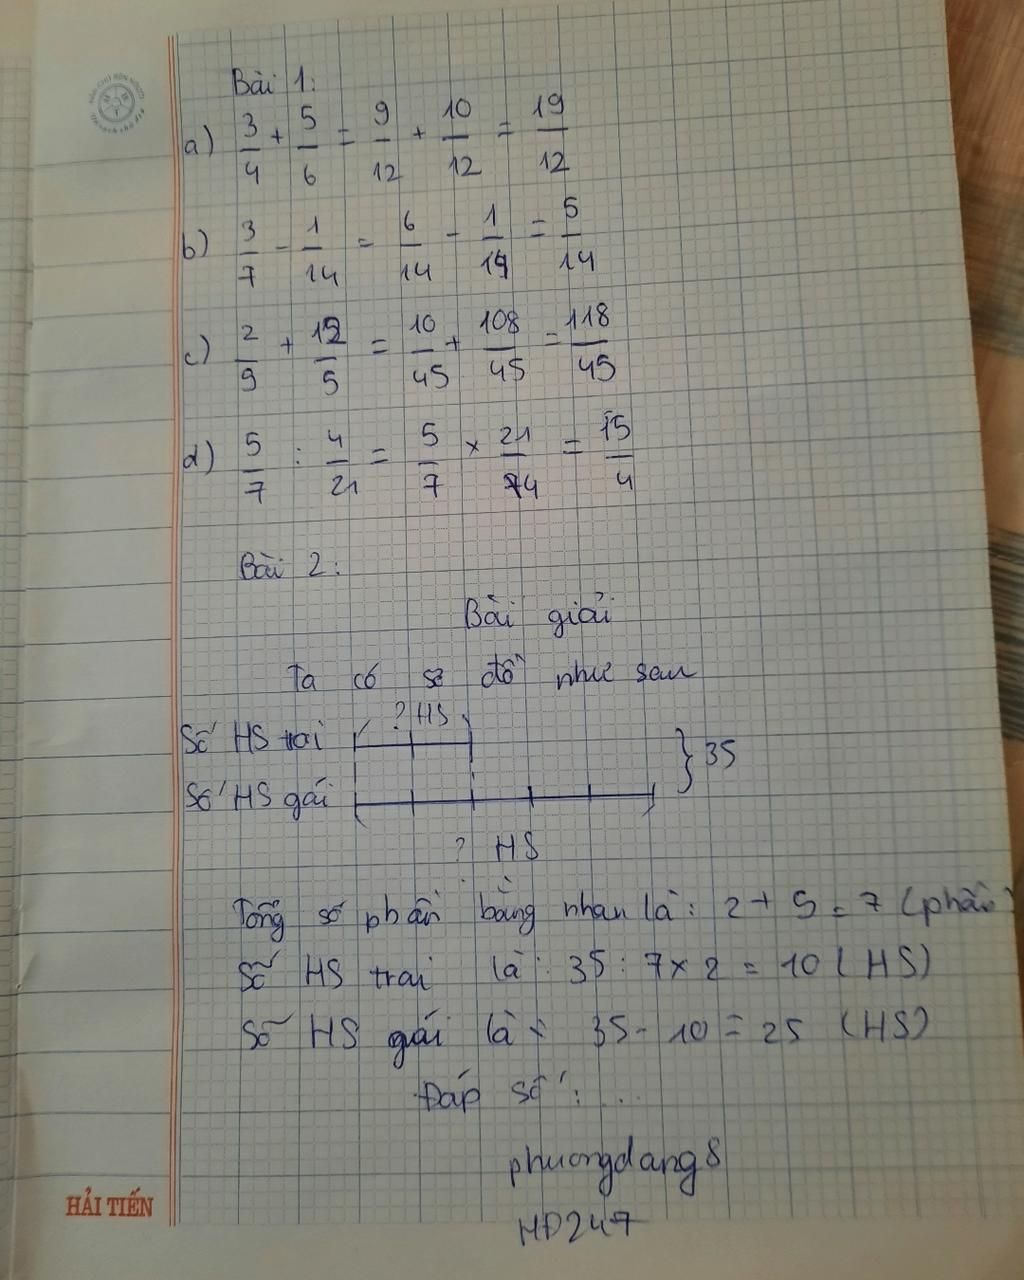 Bài 1:
a) 3/4 + 5/6 = 9/12 + 10/12 = 19/12
b) 3/7 - 1/14 = 6/14 - 1/14 = 5/14
c) 2/9 + 12/5 = 10/45 + 108/45 = 118/45
d) 5/7 : 4/21 = 5/7 × 21/4 = 15/4
Bài 2:
Bài giải
Ta có sơ đồ như sau
? HS
Số HS trai
35
Số HS gái
? HS
Tổng số phần bằng nhau là: 2 + 5 = 7 (phần)
Số HS trai là: 35 : 7 × 2 = 10 (HS)
Số HS gái là: 35 - 10 = 25 (HS)
Đáp số: ...
phuongdang8
HĐ247
HẢI TIẾN